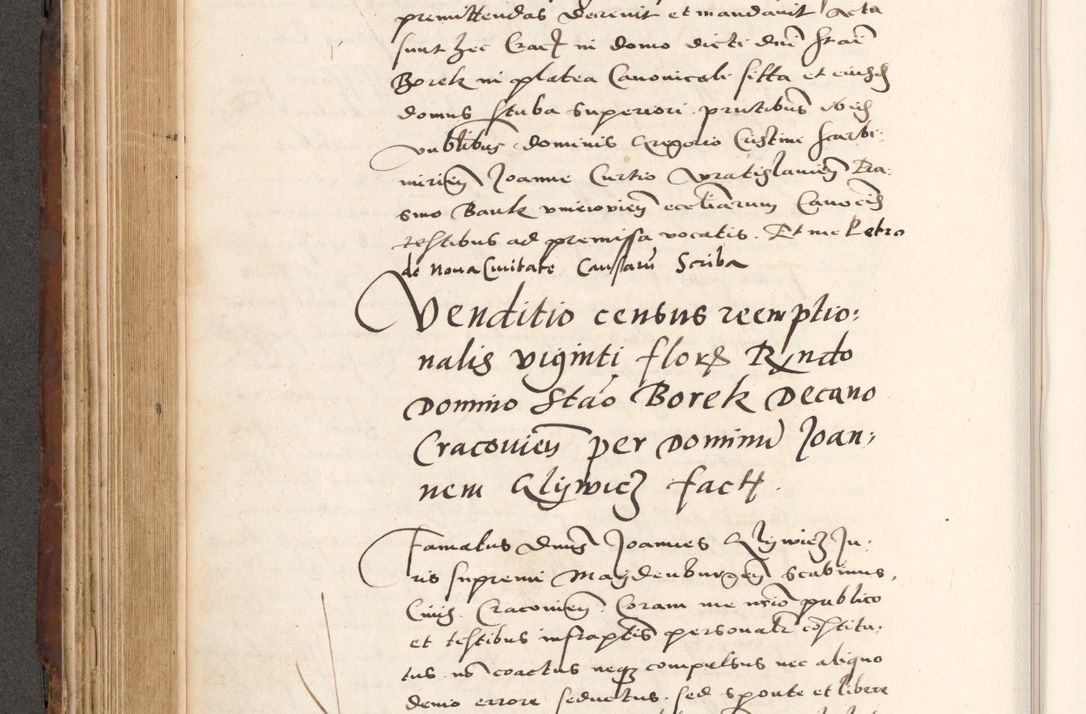 premittendas decrevit et mandavit Acta
sunt hec Crac in domo dicti dni Stan
Borek in platea Canonicali sitta et eiusd
domus stuba superiori. pntibus ibid
Nobilibus dominis Gregorio Cristine
Joanne Curtio vratislavien Era
smo Bank eccliarum Canocis
testibus ad premissa vocatis. Et me Petro
de Nova Civitate Causarum Scriba
Venditio census reemptio:
nalis viginti flor Rndo
Domino Stao Borek Decano
Cracovien per Dominu Joan:
nem Glywicz fact
Famatus dnus Joannes Glywicz Ju:
ris supremi Maydenburgen Scabinus,
Civis Cracovien. Coram me nrio publico
et testibus infraptis personalr costitu:
tus. no coactus neqz compulsus nec aliquo
demo errore seductus. sed sponte et libere